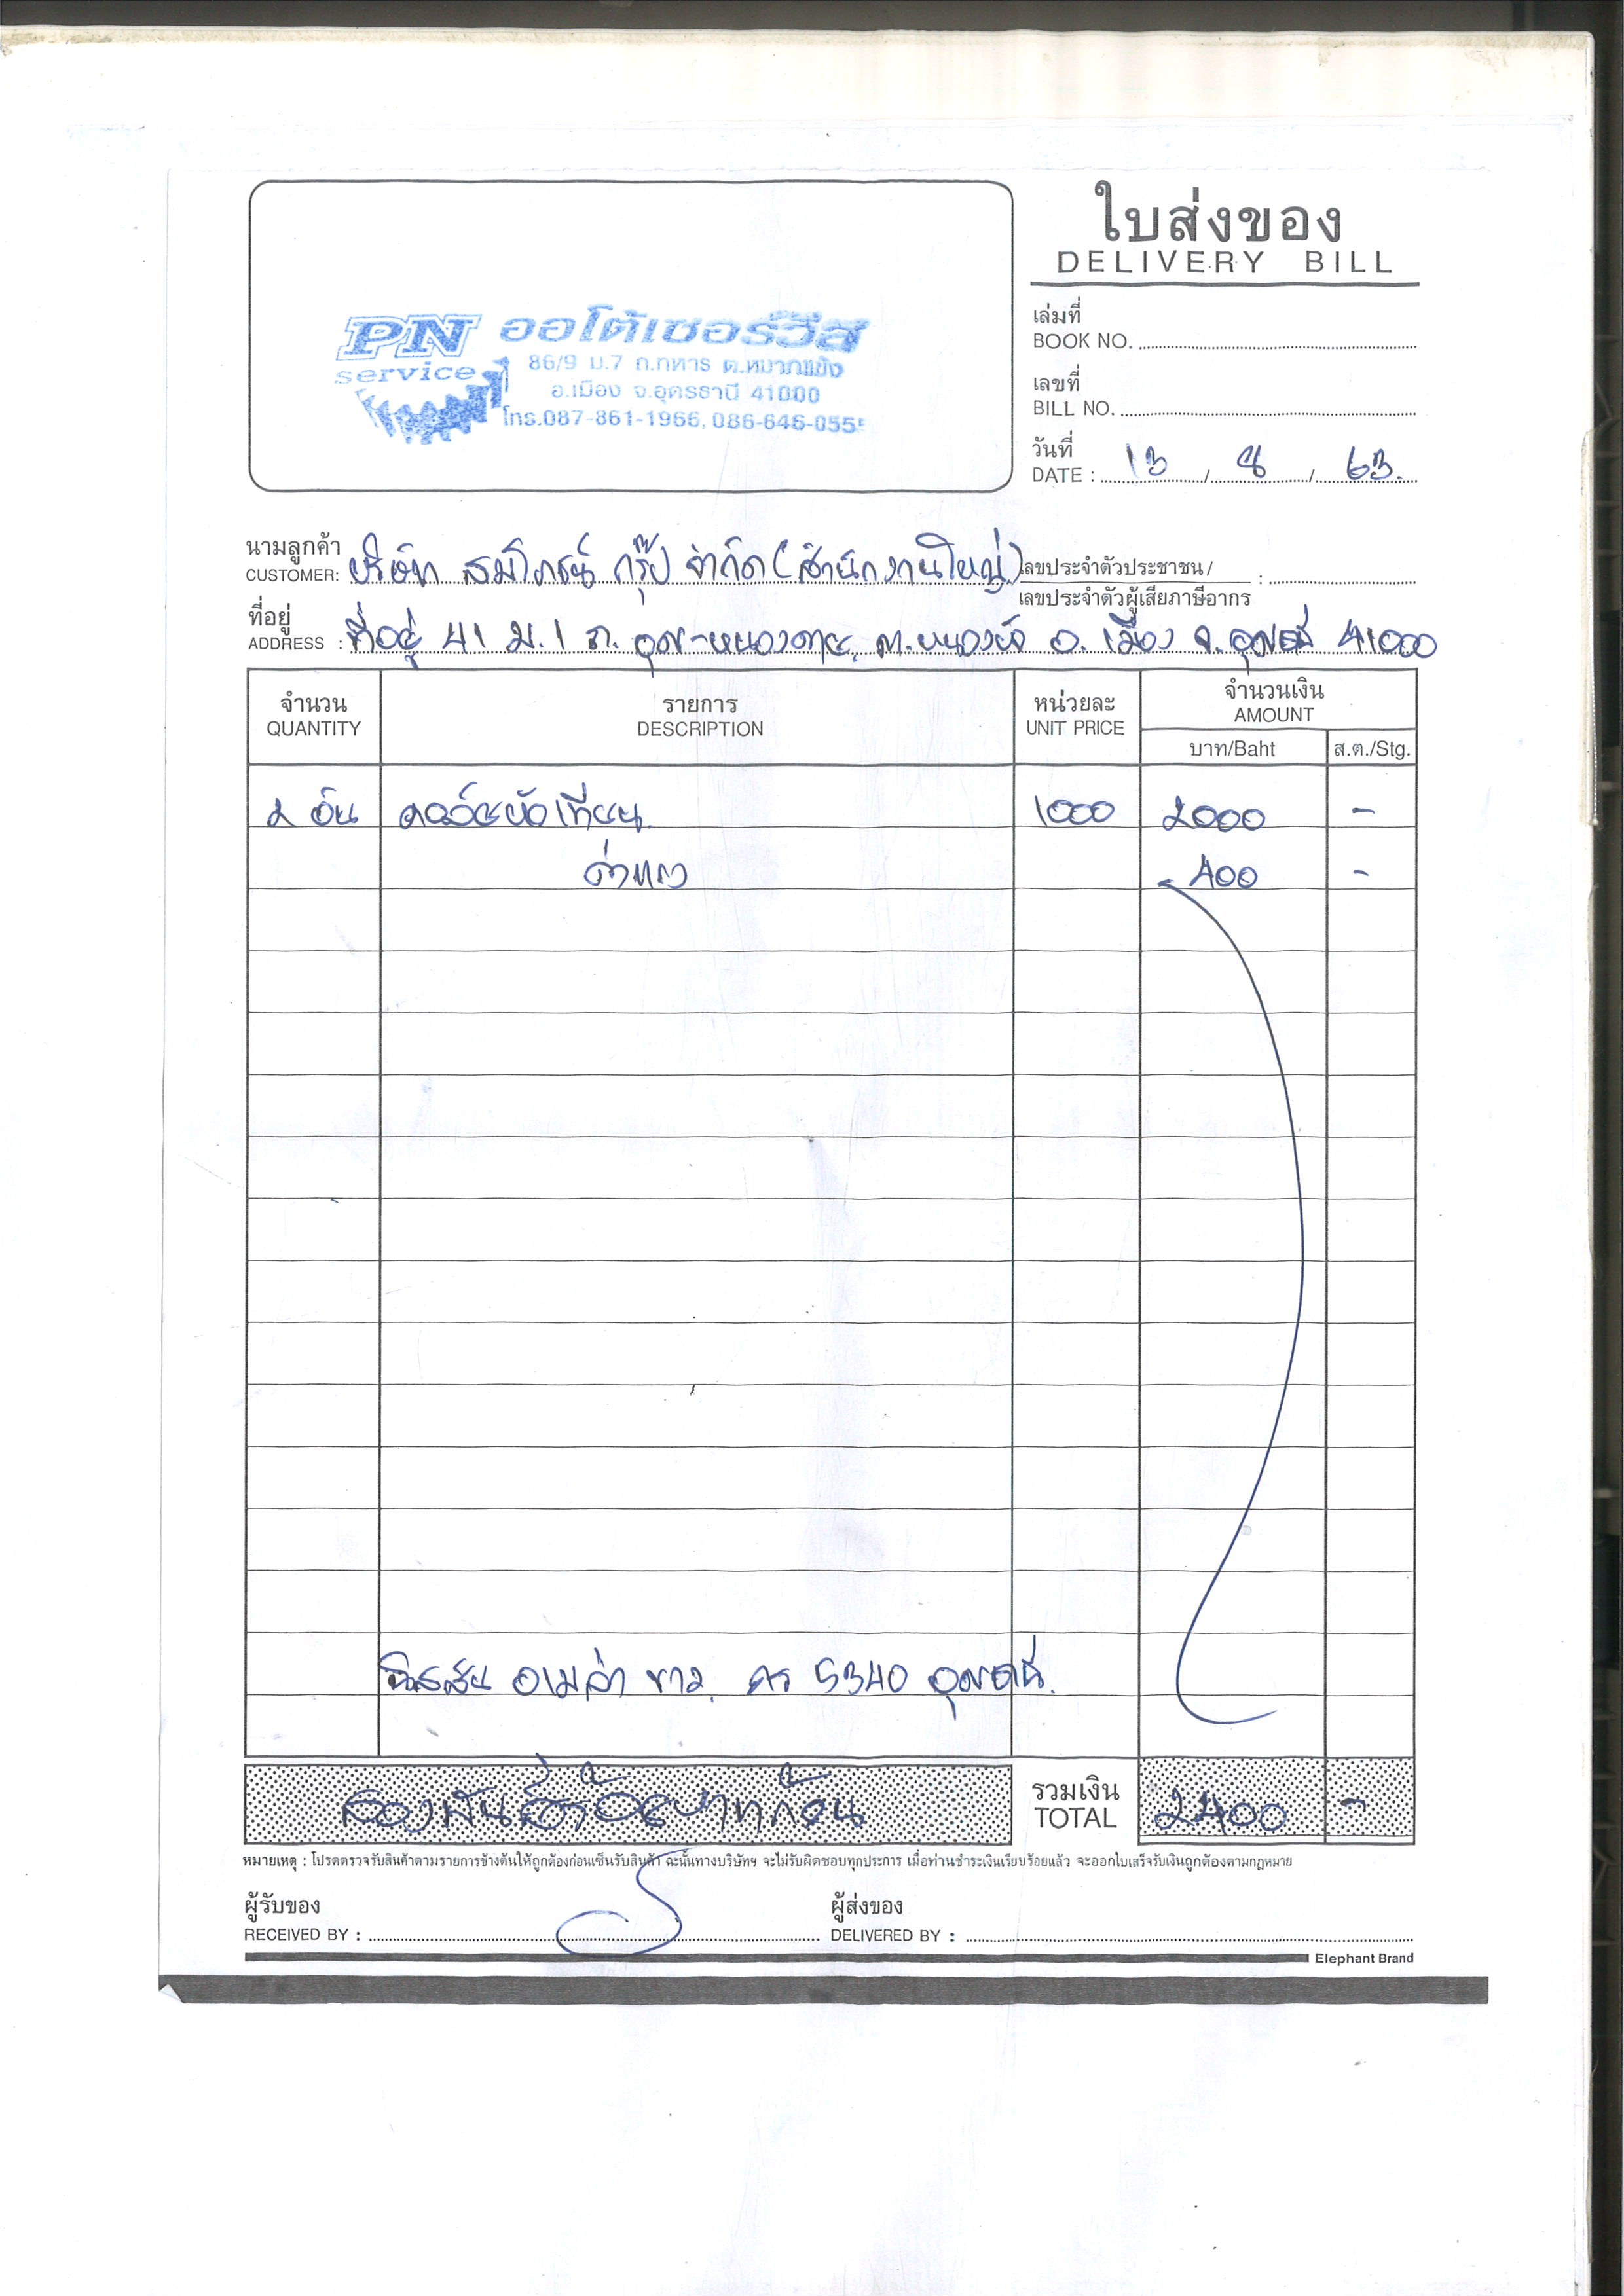 ใบส่งของ
DELIVERY BILL
PN ออโต้เซอร์วิส
service
86/9 ม.7 ถ.ทหาร ต.หมากแข้ง
อ.เมือง จ.อุดรธานี 41000
โทร.087-861-1966, 086-646-055
เล่มที่
BOOK NO.
เลขที่
BILL NO.
วันที่
DATE : 13 / 8 / 63.
นามลูกค้า
CUSTOMER: บริษัท สมโภชน์ กรุ๊ป จำกัด (สำนักงานใหญ่)
เลขประจำตัวประชาชน/ :
เลขประจำตัวผู้เสียภาษีอากร
ที่อยู่
ADDRESS : ที่อยู่ 41 ม.1 ถ. อุดร-หนองคาย ต. อ. เมือง จ. อุดรธานี 41000
จำนวน รายการ หน่วยละ จำนวนเงิน
QUANTITY DESCRIPTION UNIT PRICE AMOUNT
บาท/Baht ส.ต./Stg.
2 อัน คอล์ยหัวเทียน 1000 2000 -
ค่าแรง 400 -
นิสสัน อเมล่า ขาว 5340 อุดรธานี.
สองพันสี่ร้อยบาทถ้วน
รวมเงิน
TOTAL 2400 -
หมายเหตุ : โปรดตรวจรับสินค้าตามรายการข้างต้นให้ถูกต้องก่อนเซ็นรับสินค้า ฉะนั้นทางบริษัทฯ จะไม่รับผิดชอบทุกประการ เมื่อท่านชำระเงินเรียบร้อยแล้ว จะออกใบเสร็จรับเงินถูกต้องตามกฎหมาย
ผู้รับของ ผู้ส่งของ
RECEIVED BY : DELIVERED BY :
Elephant Brand